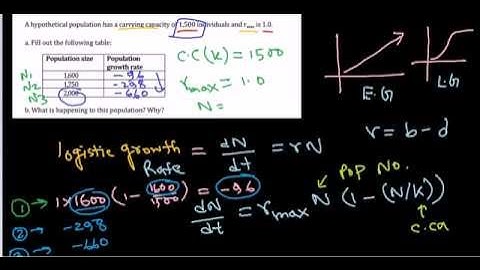 A hypothetical population has a carrying capacity of 1,500 individuals and rmax is 1.0.
a. Fill out the following table:
Population size Population growth rate
N1 1,600 -96
N2 1,750 -298
N3 2,000 -660
b. What is happening to this population? Why?
C.C(K) = 1500
rmax = 1.0
N =
E.G
L.G
r = b - d
logistic growth Rate = dN/dt = rN
① → 1x1600(1 - 1600/1500) = -96
Pop No.
dN/dt = rmax N (1 - (N/K))
② → -298
-660